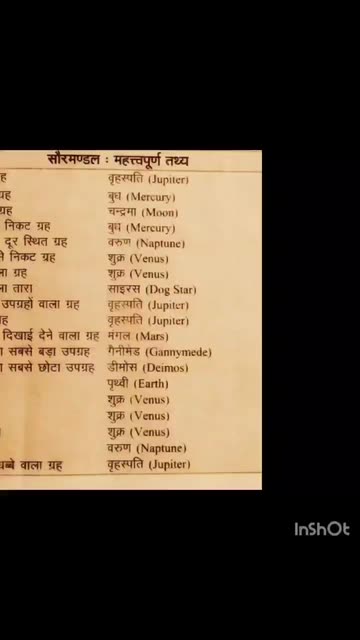 सौरमण्डल : महत्त्वपूर्ण तथ्य
ह वृहस्पति (Jupiter)
ग्रह बुध (Mercury)
ग्रह चन्द्रमा (Moon)
निकट ग्रह बुध (Mercury)
दूर स्थित ग्रह वरुण (Naptune)
से निकट ग्रह शुक्र (Venus)
ला ग्रह शुक्र (Venus)
ला तारा साइरस (Dog Star)
उपग्रहों वाला ग्रह वृहस्पति (Jupiter)
ह वृहस्पति (Jupiter)
दिखाई देने वाला ग्रह मंगल (Mars)
ा सबसे बड़ा उपग्रह गैनीमेड (Gannymede)
ा सबसे छोटा उपग्रह डीमोस (Deimos)
पृथ्वी (Earth)
शुक्र (Venus)
शुक्र (Venus)
शुक्र (Venus)
वरुण (Naptune)
धब्बे वाला ग्रह वृहस्पति (Jupiter)
InShOt